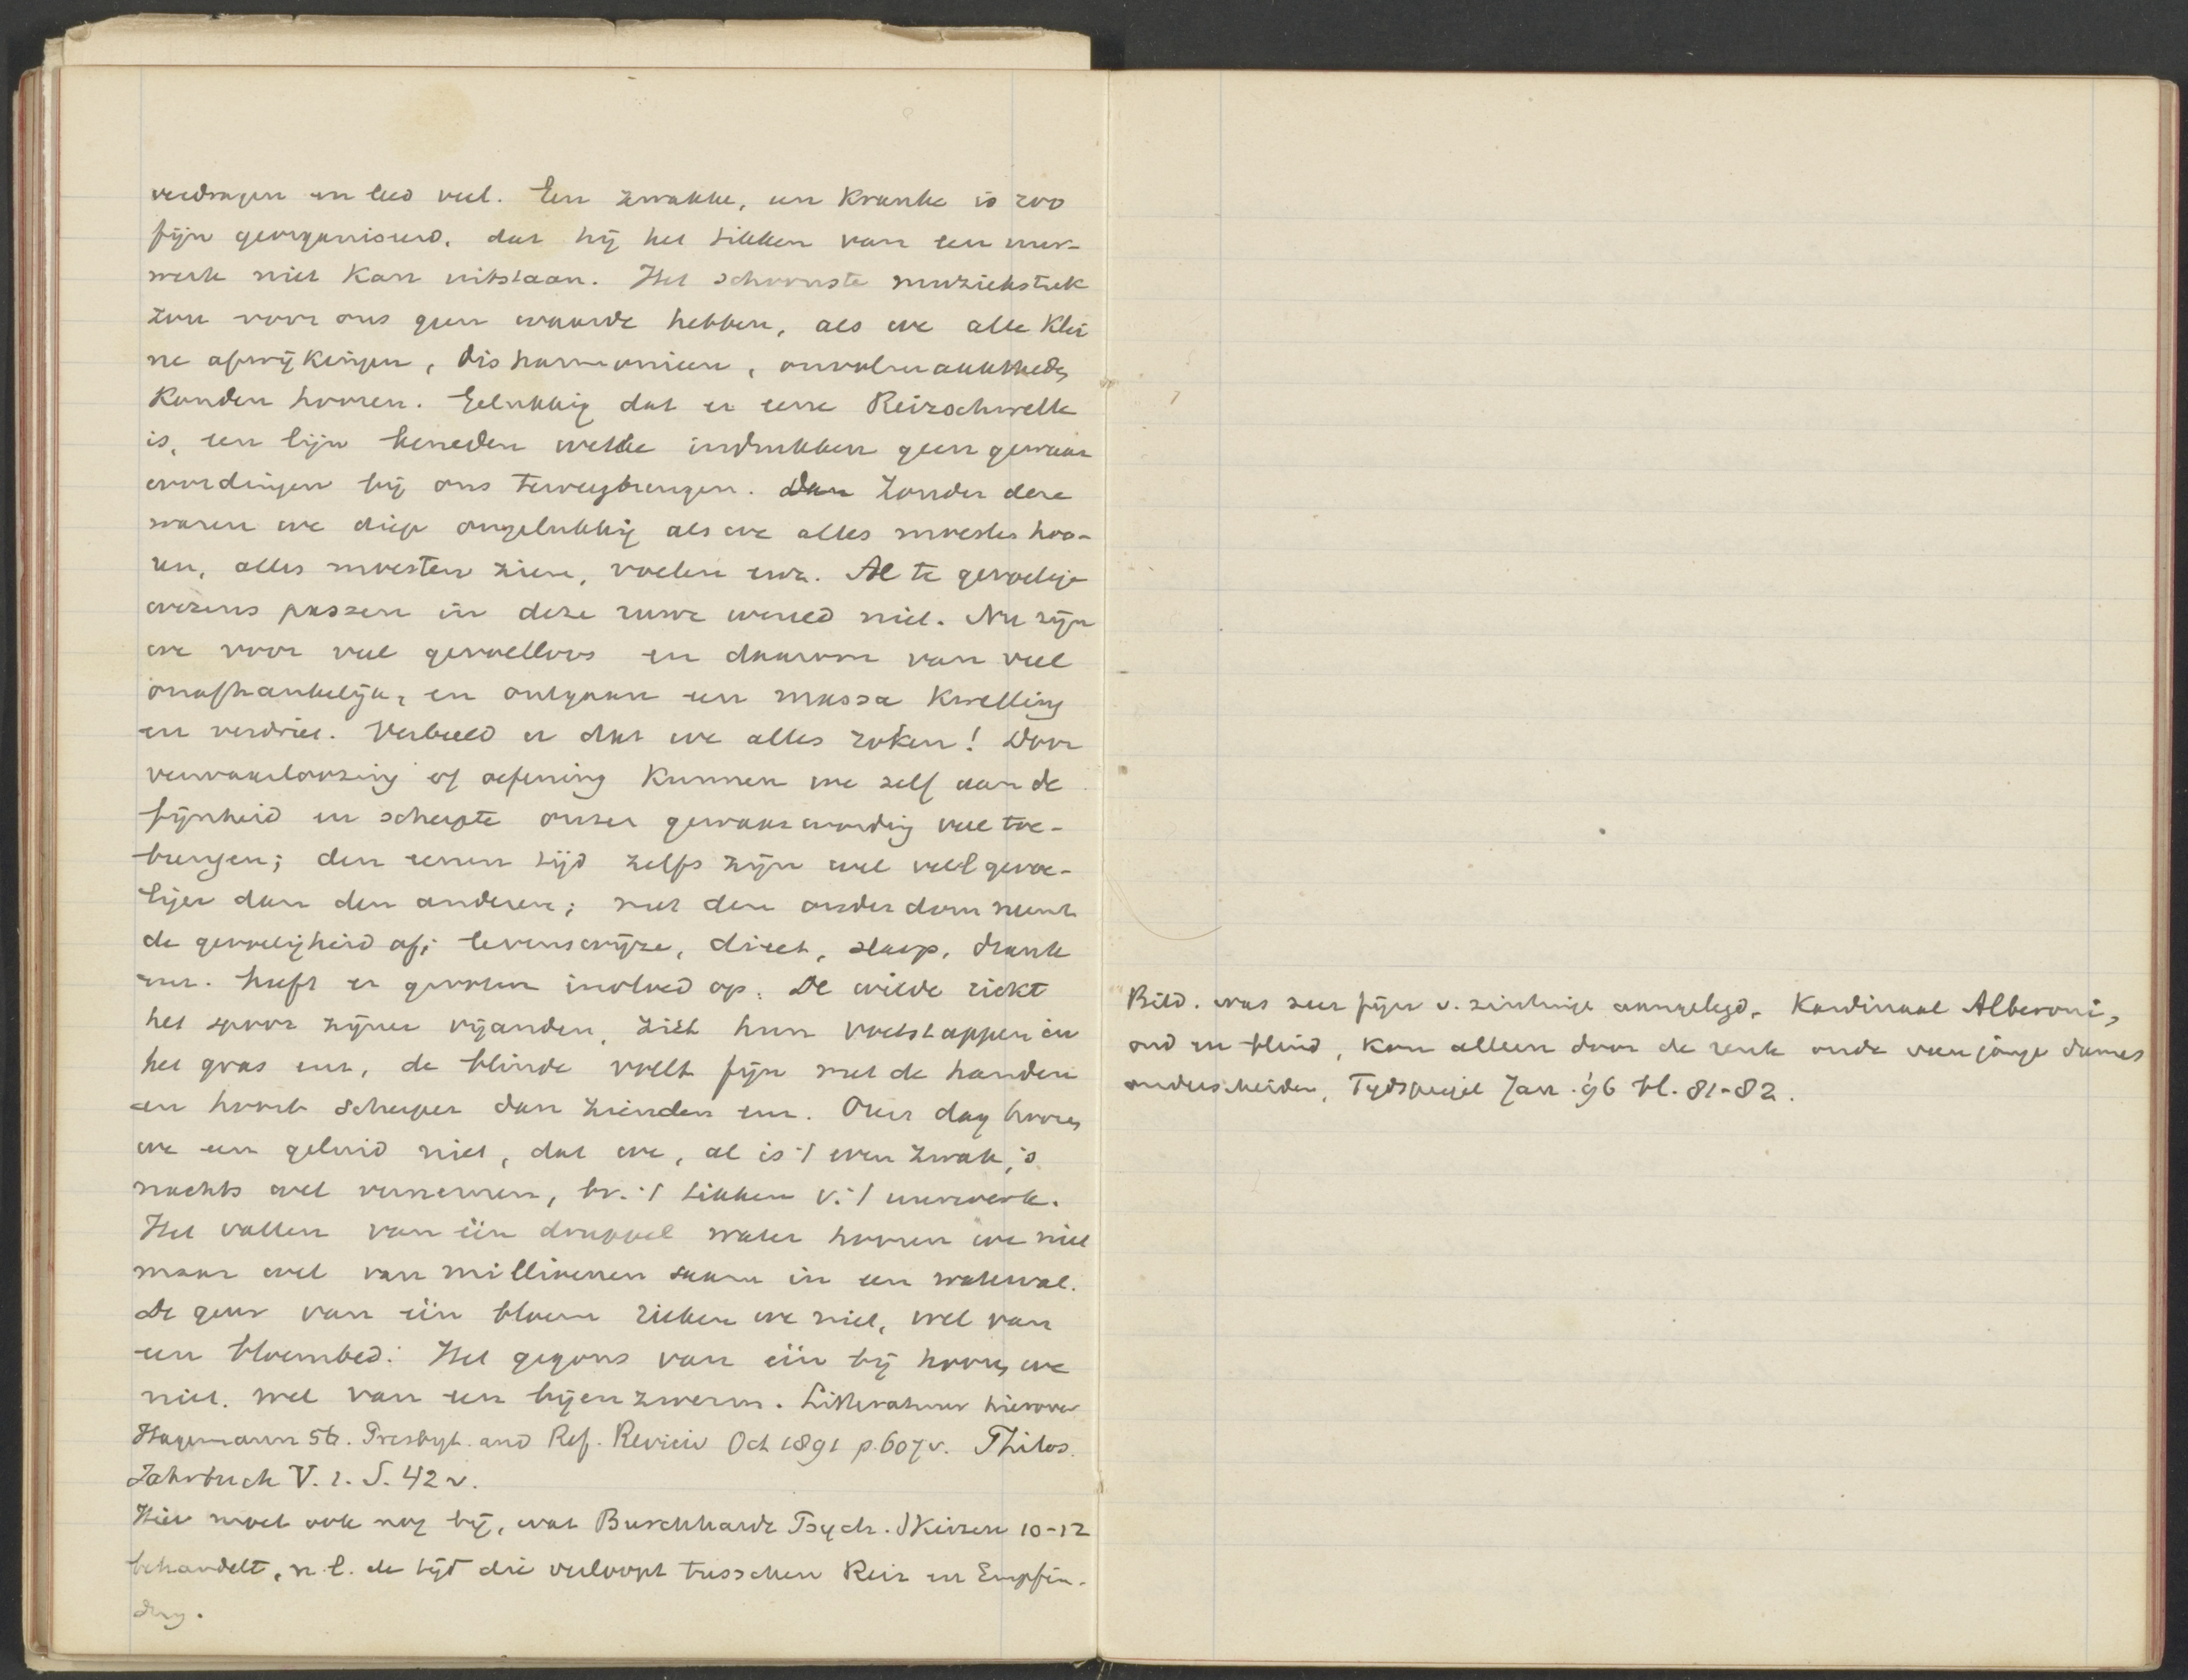 verdragen en leed veel. Een zwakke, een kranke is zoo
fijn georganiseerd, dat hij het tikken van een uur-
werk niet kan uitstaan. Het schoonste muziekstuk
zou voor ons geen waarde hebben, als we alle klei
ne afwijkingen, disharmonieen, onvolmaaktheden
konden hooren. Gelukkig dat er eene Reizschwelle
is, een lijn beneden welke indrukken geen gewaar
wordingen bij ons teweegbrengen. Dan Zonder deze
waren we diep ongelukkig als we alles moesten hoo-
ren, alles moesten zien, voelen enz. Al te gevoelige
wezens passen in deze ruwe wereld niet. Nu zijn
we voor veel gevoelloos en daarom van veel
onafhankelijk, en ontgaan een massa kwelling
en verdriet. Verbeeld er dat we alles roken! Door
verwaarloozing of oefening kunnen we zelf aan de
fijnheid en scherpte onzer gewaarwording veel toe-
brengen; den eenen tijd zelfs zijn wel veel gevoe-
liger dan den anderen; met den ouderdom neemt
de gevoeligheid af; levenswijze, dieet, slaap, drank
enz. heeft er grooten invloed op. De wilde riekt
het spoor zijner vijanden, ziet hun voetstappen in
het gras enz, de blinde voelt fijn met de handen
en hoort scherper dan zienden enz. Over dag hooren
we een geluid niet, dat we, al is 't even zwak, 's
nachts wel vernemen, bv. 't tikken v. 't uurwerk.
Het vallen van één druppel water hooren we niet
maar wel van millioenen saam in een waterval.
De geur van één bloem rieken we niet, wel van
een bloembed. Het gegons van één bij hooren we
niet. wel van een bijenzwerm. Litteratuur hierover
Hagemann 56. Presbyt. and Ref. Review Oct 1891 p. 607v. Philos.
Jahrbuch V. 1. S. 42 v.
Hier moet ook nog bij, wat Burckhardt Psych. Skizzen 10-12
behandelt, n.l. de tijd die verloopt tusschen Reiz en Empfin-
dung.
Bild. was zeer fijn v. zintuige aangelegd. Kardinaal Alberoni,
oud en blind, kon alleen door de reuk oude van jonge dames
onderscheiden, Tydspiegel Jan. '96 bl. 81-82.